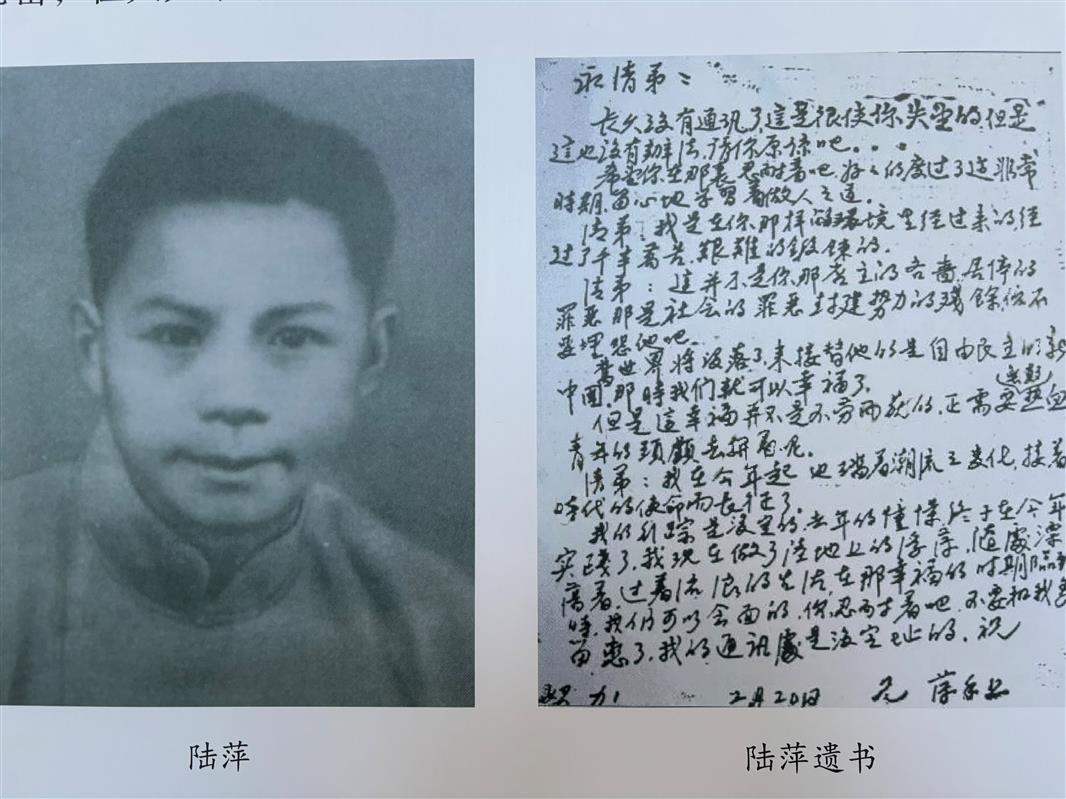 陆萍
永清弟：
长久没有通讯了，这是很使你失望的，但是
这也没有辦法，请你原谅吧...
希望你在那裹忍耐着吧，好々的度过了这非常
時期，留心地学習着做人之道。
清弟：我是在你那样的环境里经过来的，经
过了千辛萬苦，艱难的鍛鍊的。
清弟：這并不是你那店主的吝嗇，居停的
罪恶，那是社会的罪恶，封建势力的残餘，你不
要埋怨他吧。
舊世界将没落了，来接替他的是自由民主的新
中國，那時我们就可以幸福了。
但是這幸福并不是不劳而获的，正需要热血
青年的頭顱去拼着呢。
清弟：我在今年起，也随着潮流之变化，接着
時代的使命而长征了。
我的行踪是没定的，去年的憧憬终于在今年
实现了，我现在做了陸地上的浮萍，随處漂
蕩着，过着流浪的生活，在那幸福的时期临到
時，我们可以会面的，你忍耐着吧，不要和我
通訊處是没定址的，祝
努力
2月20日
兄
陆萍遗书